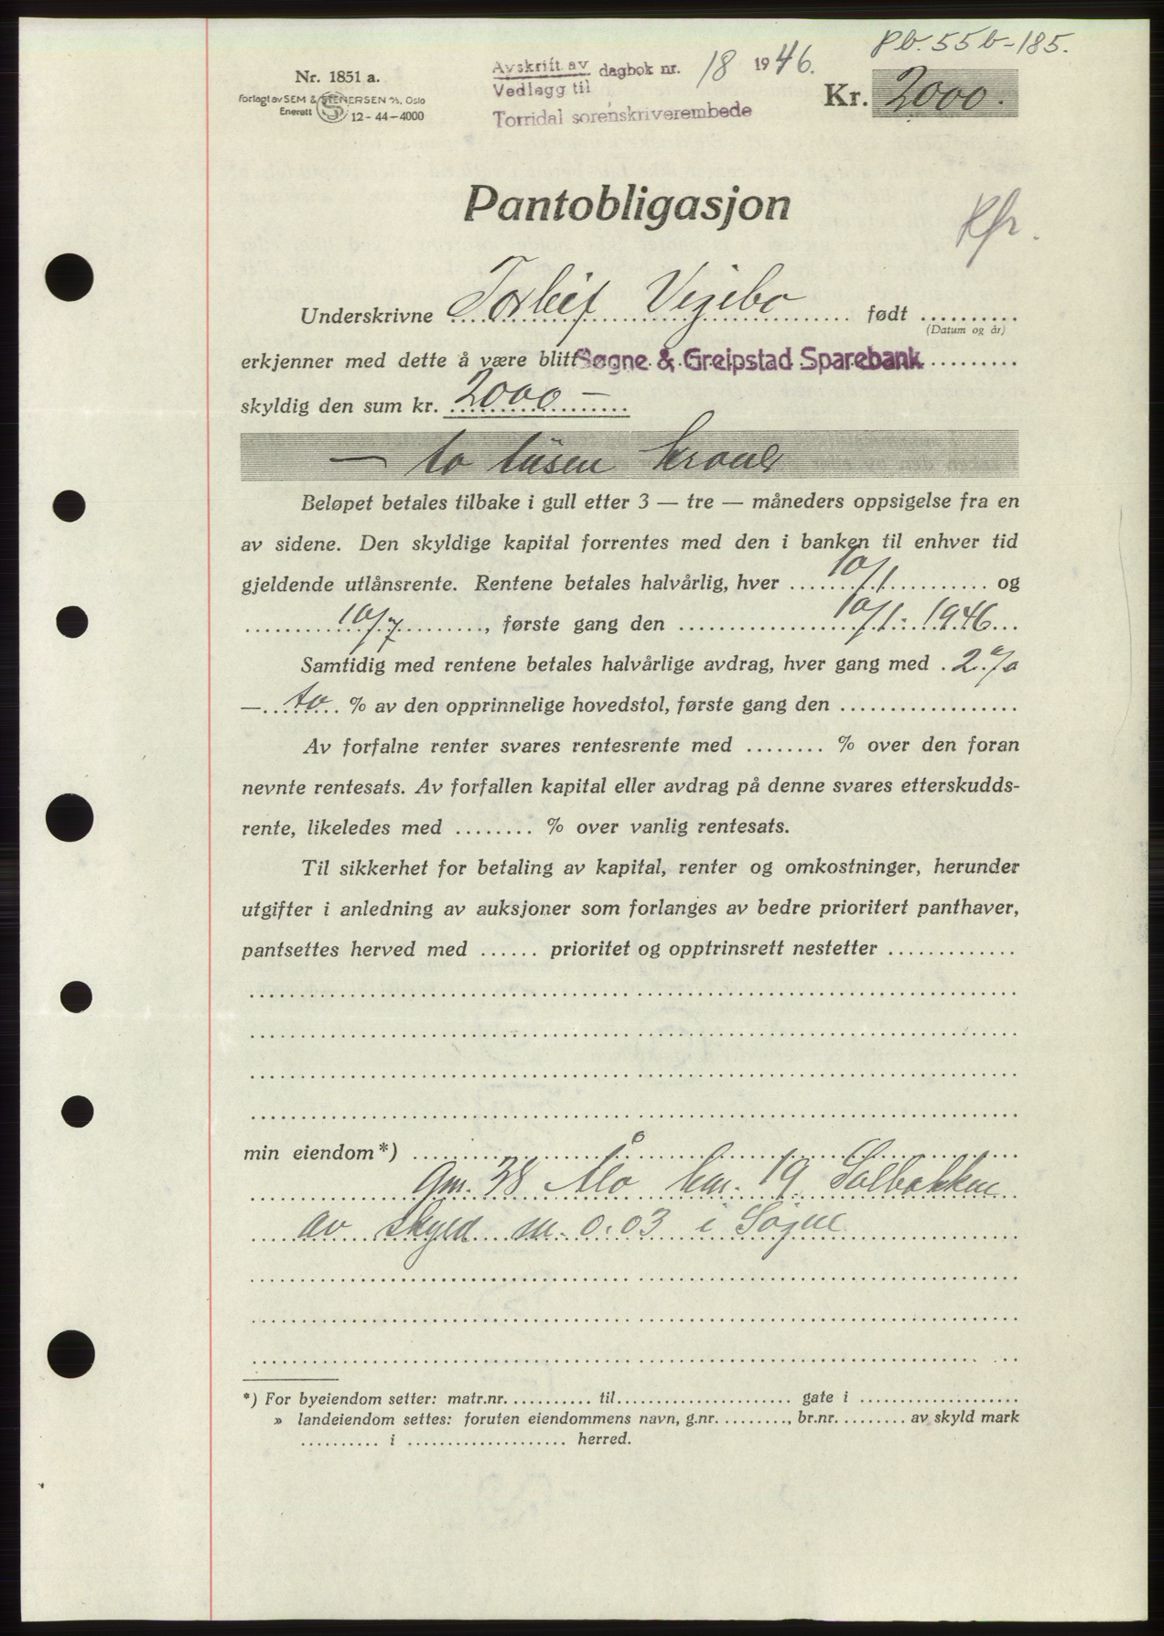 Pb. 55b-185.
Nr. 1851 a.
Forlagt av SEM & STENERSEN A/S, Oslo
Enerett 12-44-4000
Avskrift av
Vedlegg til
dagbok nr. 18 1946.
Torridal sorenskriverembede
Kr. 2000.
Pantobligasjon
Underskrivne Torleif Vigebo født ..........
(Datum og år)
erkjenner med dette å være blitt Søgne & Greipstad Sparebank
skyldig den sum kr. 2000 —
— to tusen kroner
Beløpet betales tilbake i gull etter 3 — tre — måneders oppsigelse fra en
av sidene. Den skyldige kapital forrentes med den i banken til enhver tid
gjeldende utlånsrente. Rentene betales halvårlig, hver 10/1 og
10/7, første gang den 10/1-1946
Samtidig med rentene betales halvårlige avdrag, hver gang med 2%
— to % av den opprinnelige hovedstol, første gang den ..................
Av forfalne renter svares rentesrente med ........ % over den foran
nevnte rentesats. Av forfallen kapital eller avdrag på denne svares etterskudds-
rente, likeledes med ........ % over vanlig rentesats.
Til sikkerhet for betaling av kapital, renter og omkostninger, herunder
utgifter i anledning av auksjoner som forlanges av bedre prioritert panthaver,
pantsettes herved med ...... prioritet og opptrinsrett nestetter .............
min eiendom*)
Gnr. 38 Ålo bnr. 19 Solbakken
av skyld m. 0.03 i Søgne
*) For byeiendom setter: matr.nr. .......... til ...................... gate i ....................
» landeiendom settes: foruten eiendommens navn, g.nr. ........, br.nr. ........ av skyld mark
.......... i .................... herred.